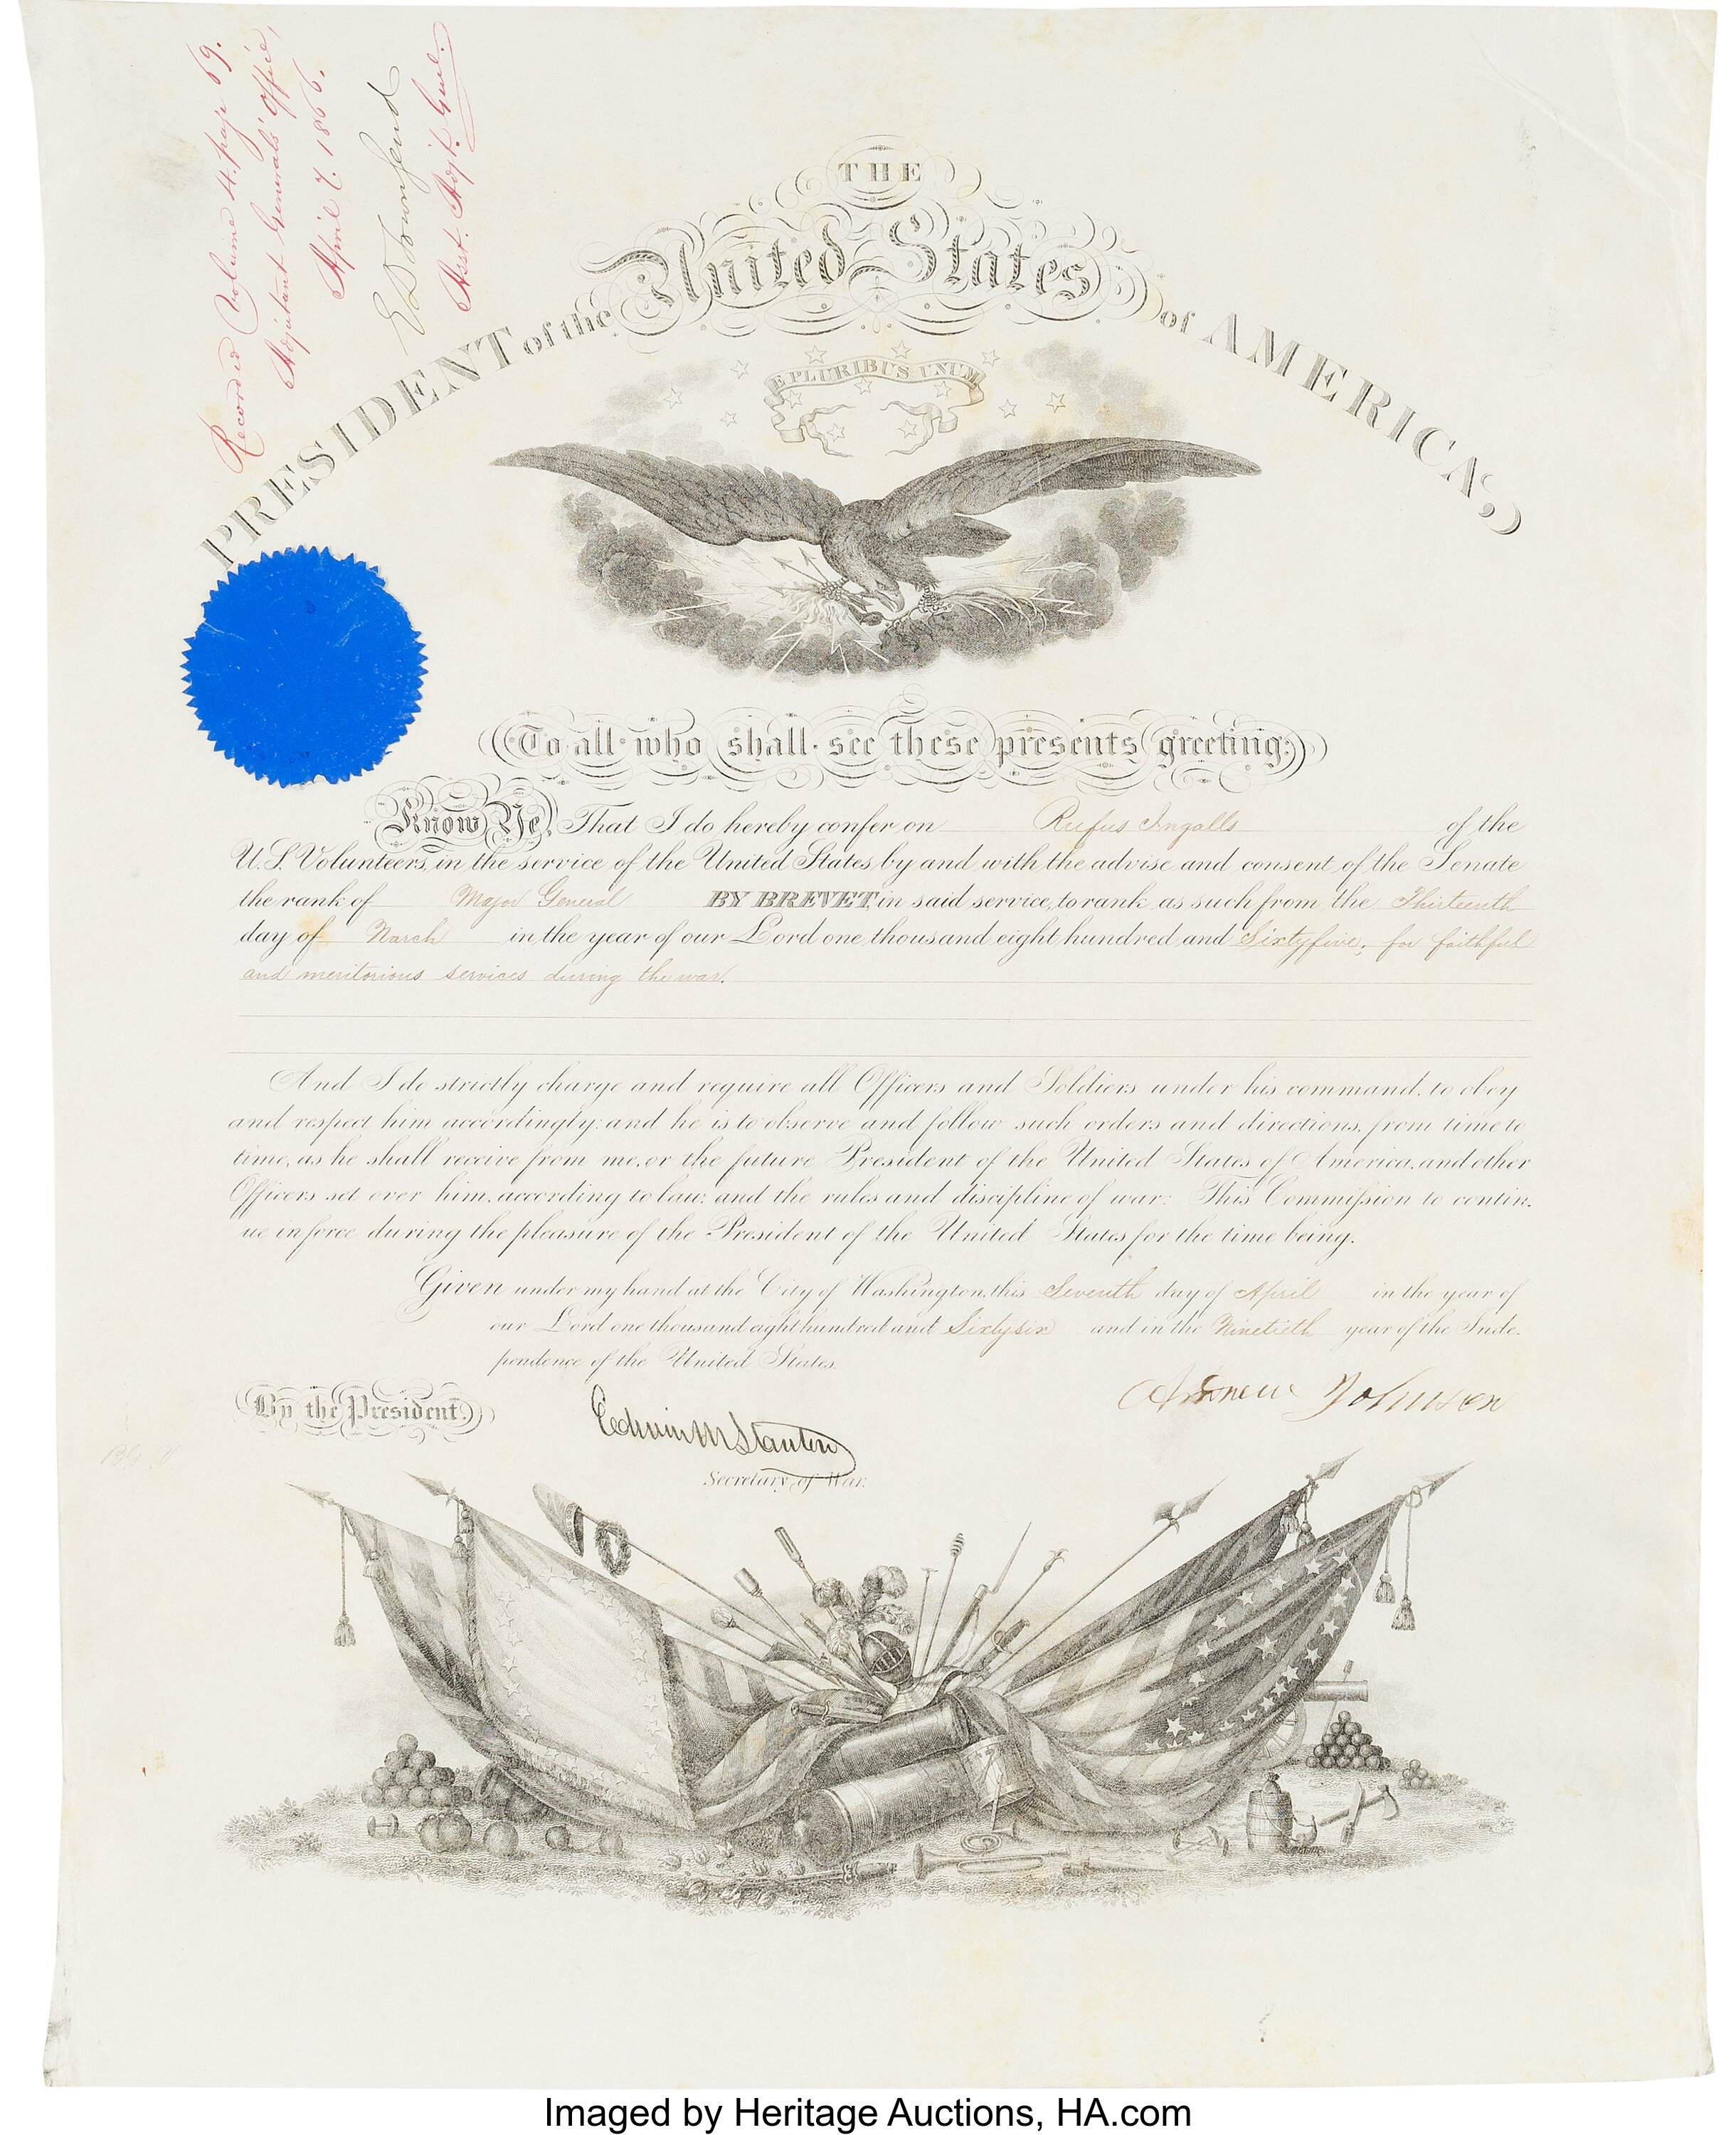 Recorded Volume 4. page 69.
Adjutant Generals' Office,
April 7. 1866.
E D Townsend
Asst. Adjt. Genl.
THE
PRESIDENT of the United States of AMERICA,
E PLURIBUS UNUM
To all who shall see these presents greeting:
Know Ye, That I do hereby confer on Rufus Ingalls of the
U.S. Volunteers, in the service of the United States by and with the advise and consent of the Senate
the rank of Major General BY BREVET, in said service, to rank as such from the Thirteenth
day of March in the year of our Lord one thousand eight hundred and Sixtyfive, for faithful
and meritorious services during the war.
And I do strictly charge and require all Officers and Soldiers under his command, to obey
and respect him accordingly: and he is to observe and follow such orders and directions, from time to
time, as he shall receive from me, or the future President of the United States of America, and other
Officers set over him, according to law; and the rules and discipline of war: This Commission to contin-
ue in force during the pleasure of the President of the United States for the time being.
Given under my hand at the City of Washington, this Seventh day of April in the year of
our Lord one thousand eight hundred and Sixtysix and in the Ninetieth year of the Inde-
pendence of the United States.
Andrew Johnson
By the President,
Edwin M Stanton
Secretary of War.
Imaged by Heritage Auctions, HA.com